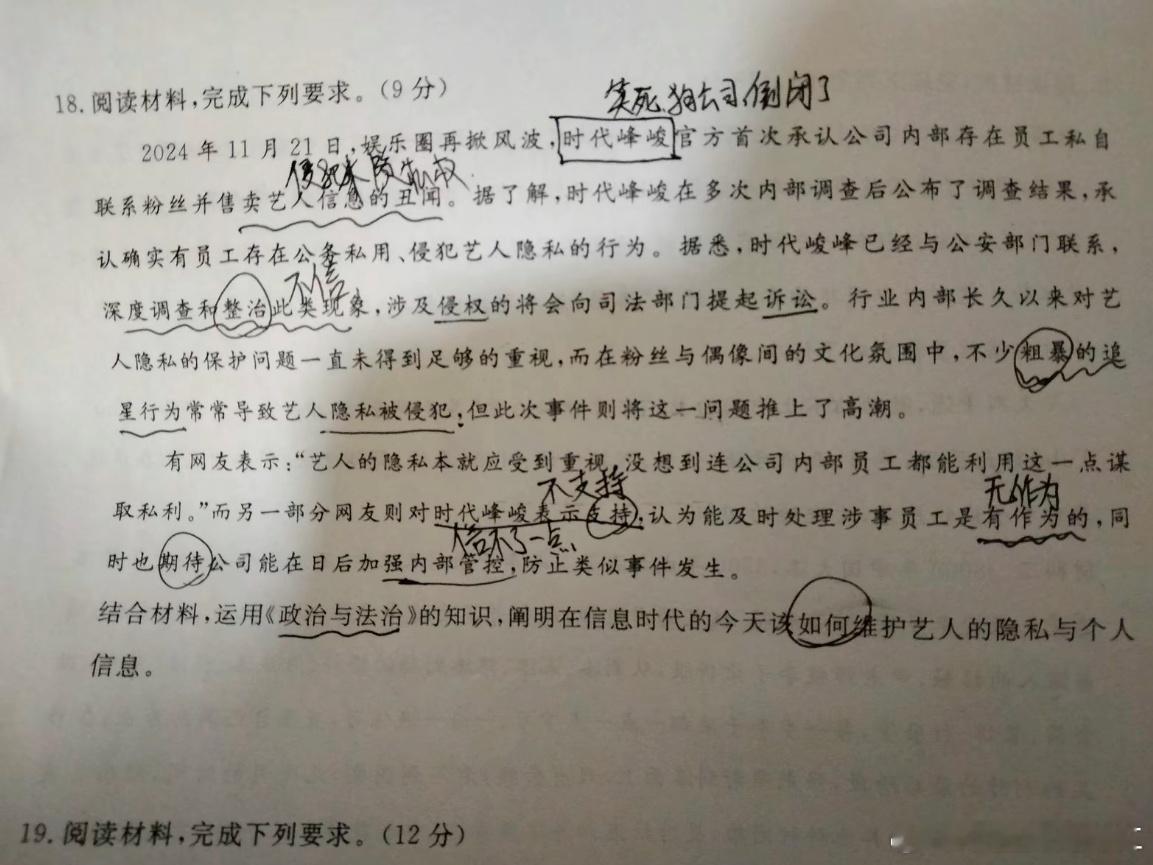 18.阅读材料,完成下列要求。(9分)
笑死,狗公司倒闭了
2024年11月21日,娱乐圈再掀风波,时代峰峻官方首次承认公司内部存在员工私自
联系粉丝并售卖艺人信息的丑闻。据了解,时代峰峻在多次内部调查后公布了调查结果,承
认确实有员工存在公务私用、侵犯艺人隐私的行为。据悉,时代峻峰已经与公安部门联系,
不信
深度调查和整治此类现象,涉及侵权的将会向司法部门提起诉讼。行业内部长久以来对艺
人隐私的保护问题一直未得到足够的重视,而在粉丝与偶像间的文化氛围中,不少粗暴的追
星行为常常导致艺人隐私被侵犯,但此次事件则将这一问题推上了高潮。
有网友表示:“艺人的隐私本就应受到重视,没想到连公司内部员工都能利用这一点谋
不支持
无作为
取私利。”而另一部分网友则对时代峰峻表示支持,认为能及时处理涉事员工是有作为的,同
信不了一点
时也期待公司能在日后加强内部管控,防止类似事件发生。
结合材料,运用《政治与法治》的知识,阐明在信息时代的今天该如何维护艺人的隐私与个人
信息。
19.阅读材料,完成下列要求。(12分)